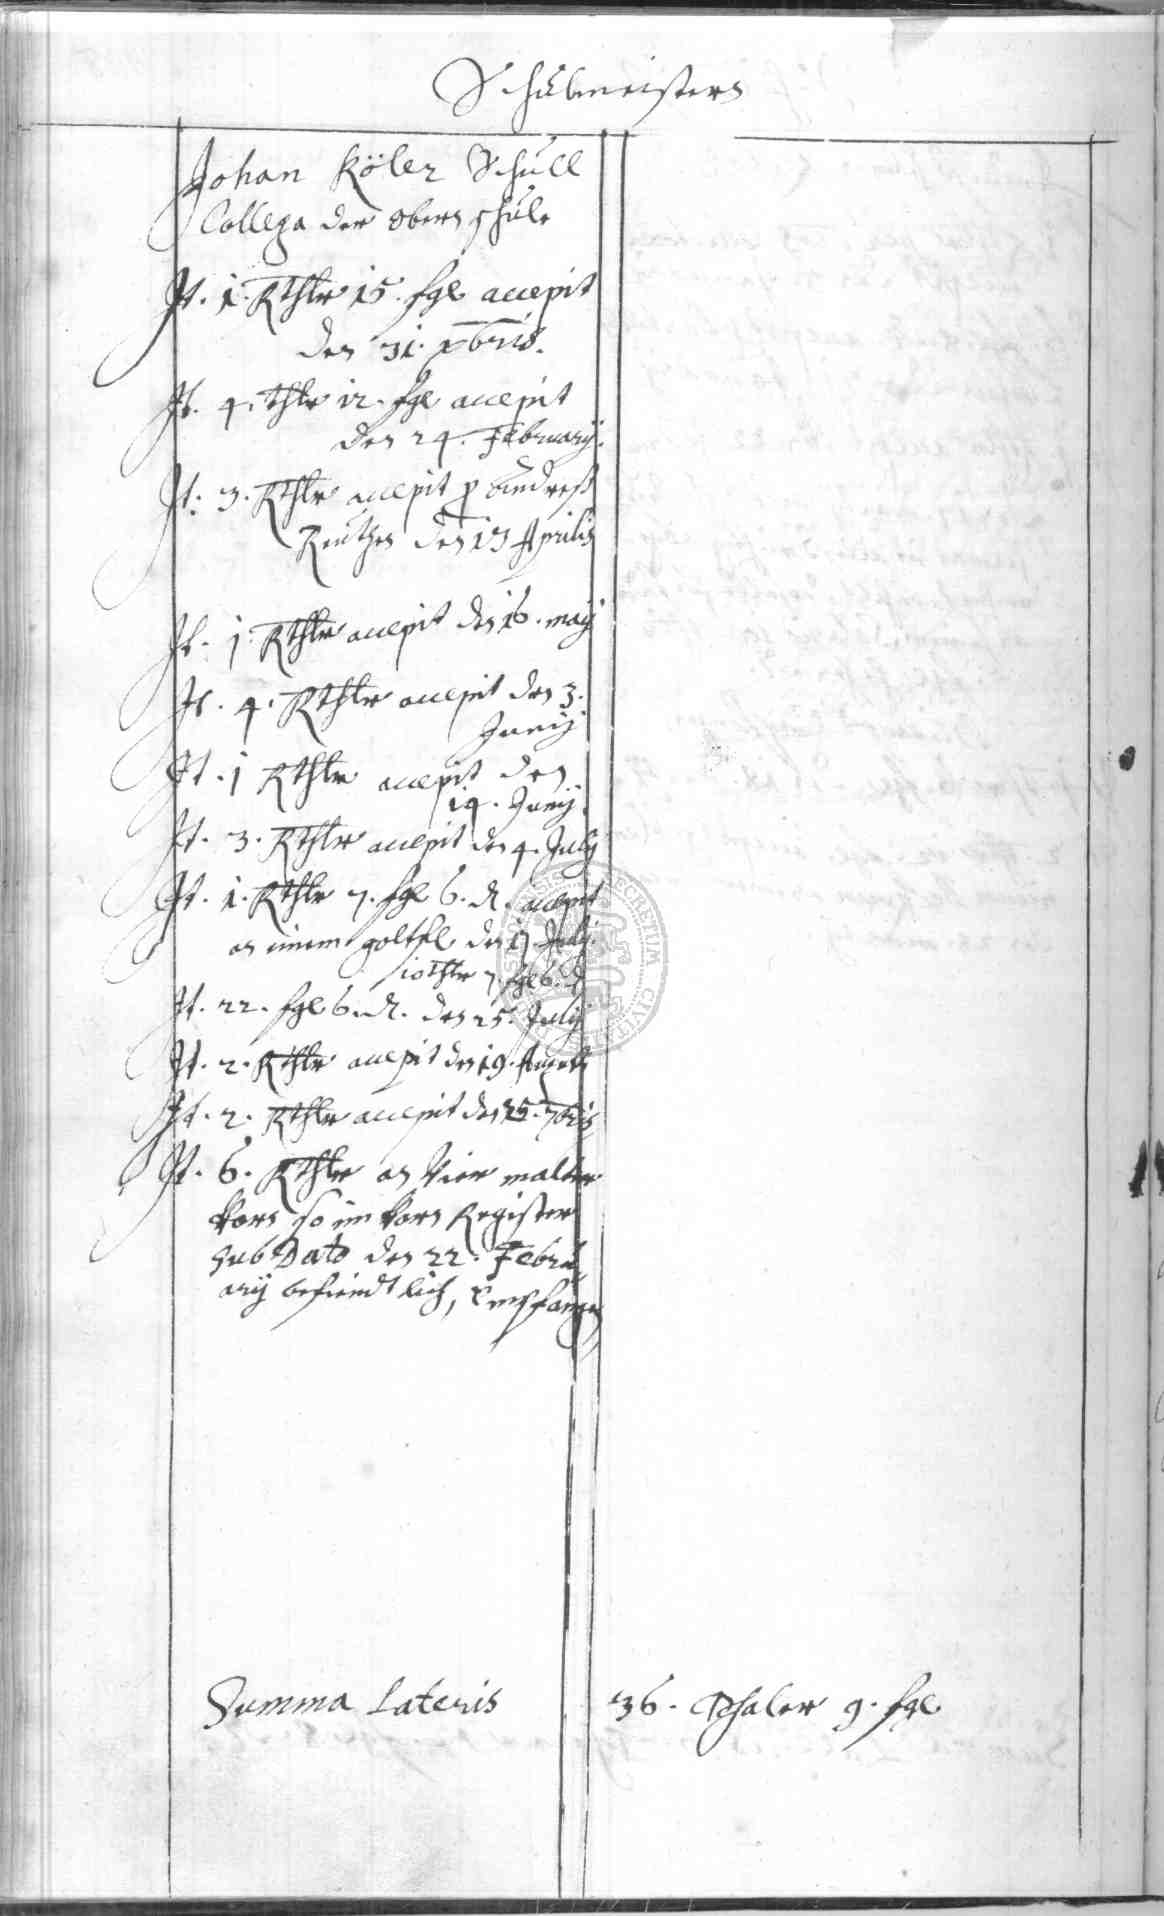 Schulmeistern
Johan Köler Schull
Collega der obern schule
It. 1. Rthlr 15. sgl accepit
den 31. xbris.
It. 4. thlr 12. sgl accepit
den 24. February.
It. 3. Rthlr accepit p Andreß
Reuthen den 13 Aprilis
It. 1 Rthlr accepit den 16. maij
It. 4. Rthlr accepit den 3.
Junij
It. 1 Rthlr accepit den
14. Junij.
It. 3. Rthlr accepit den 4. July
It. 1. Rthlr 7. sgl 6. d. accepit
an einem goltfl den 17 July.
10 thlr 7. sgl 6. d
It. 22. sgl 6. d. den 25. July
It. 2. Rthlr accepit den 19. Augusti
It. 2. Rthlr accepit den 25. 7bris
It. 6. Rthlr an Vier malter
korn so im korn Register
sub Dato den 22. Febru
ary befindtlich, Empfangen
Summa Lateris 36. Thaler 9. sgl
SECRETUM CIVITATIS